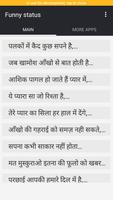 Funny status
MAIN
MORE APPS
पलकों में कैद कुछ सपने है,...
जब खामोश आँखो से बात होती है,...
आशिक पागल हो जाते है प्यार में,...
ये प्यारा सा जो रिस्ता है,...
तेरे प्यार का सिला हर हाल में देंगे,...
आँखों की गहराई को समझ नही सकते,...
सपना कभी साकार नहीं होता,...
मत मुस्कुराओ इतना के फूलो को खबर...
परछाई आपकी हमारे दिल में है,...